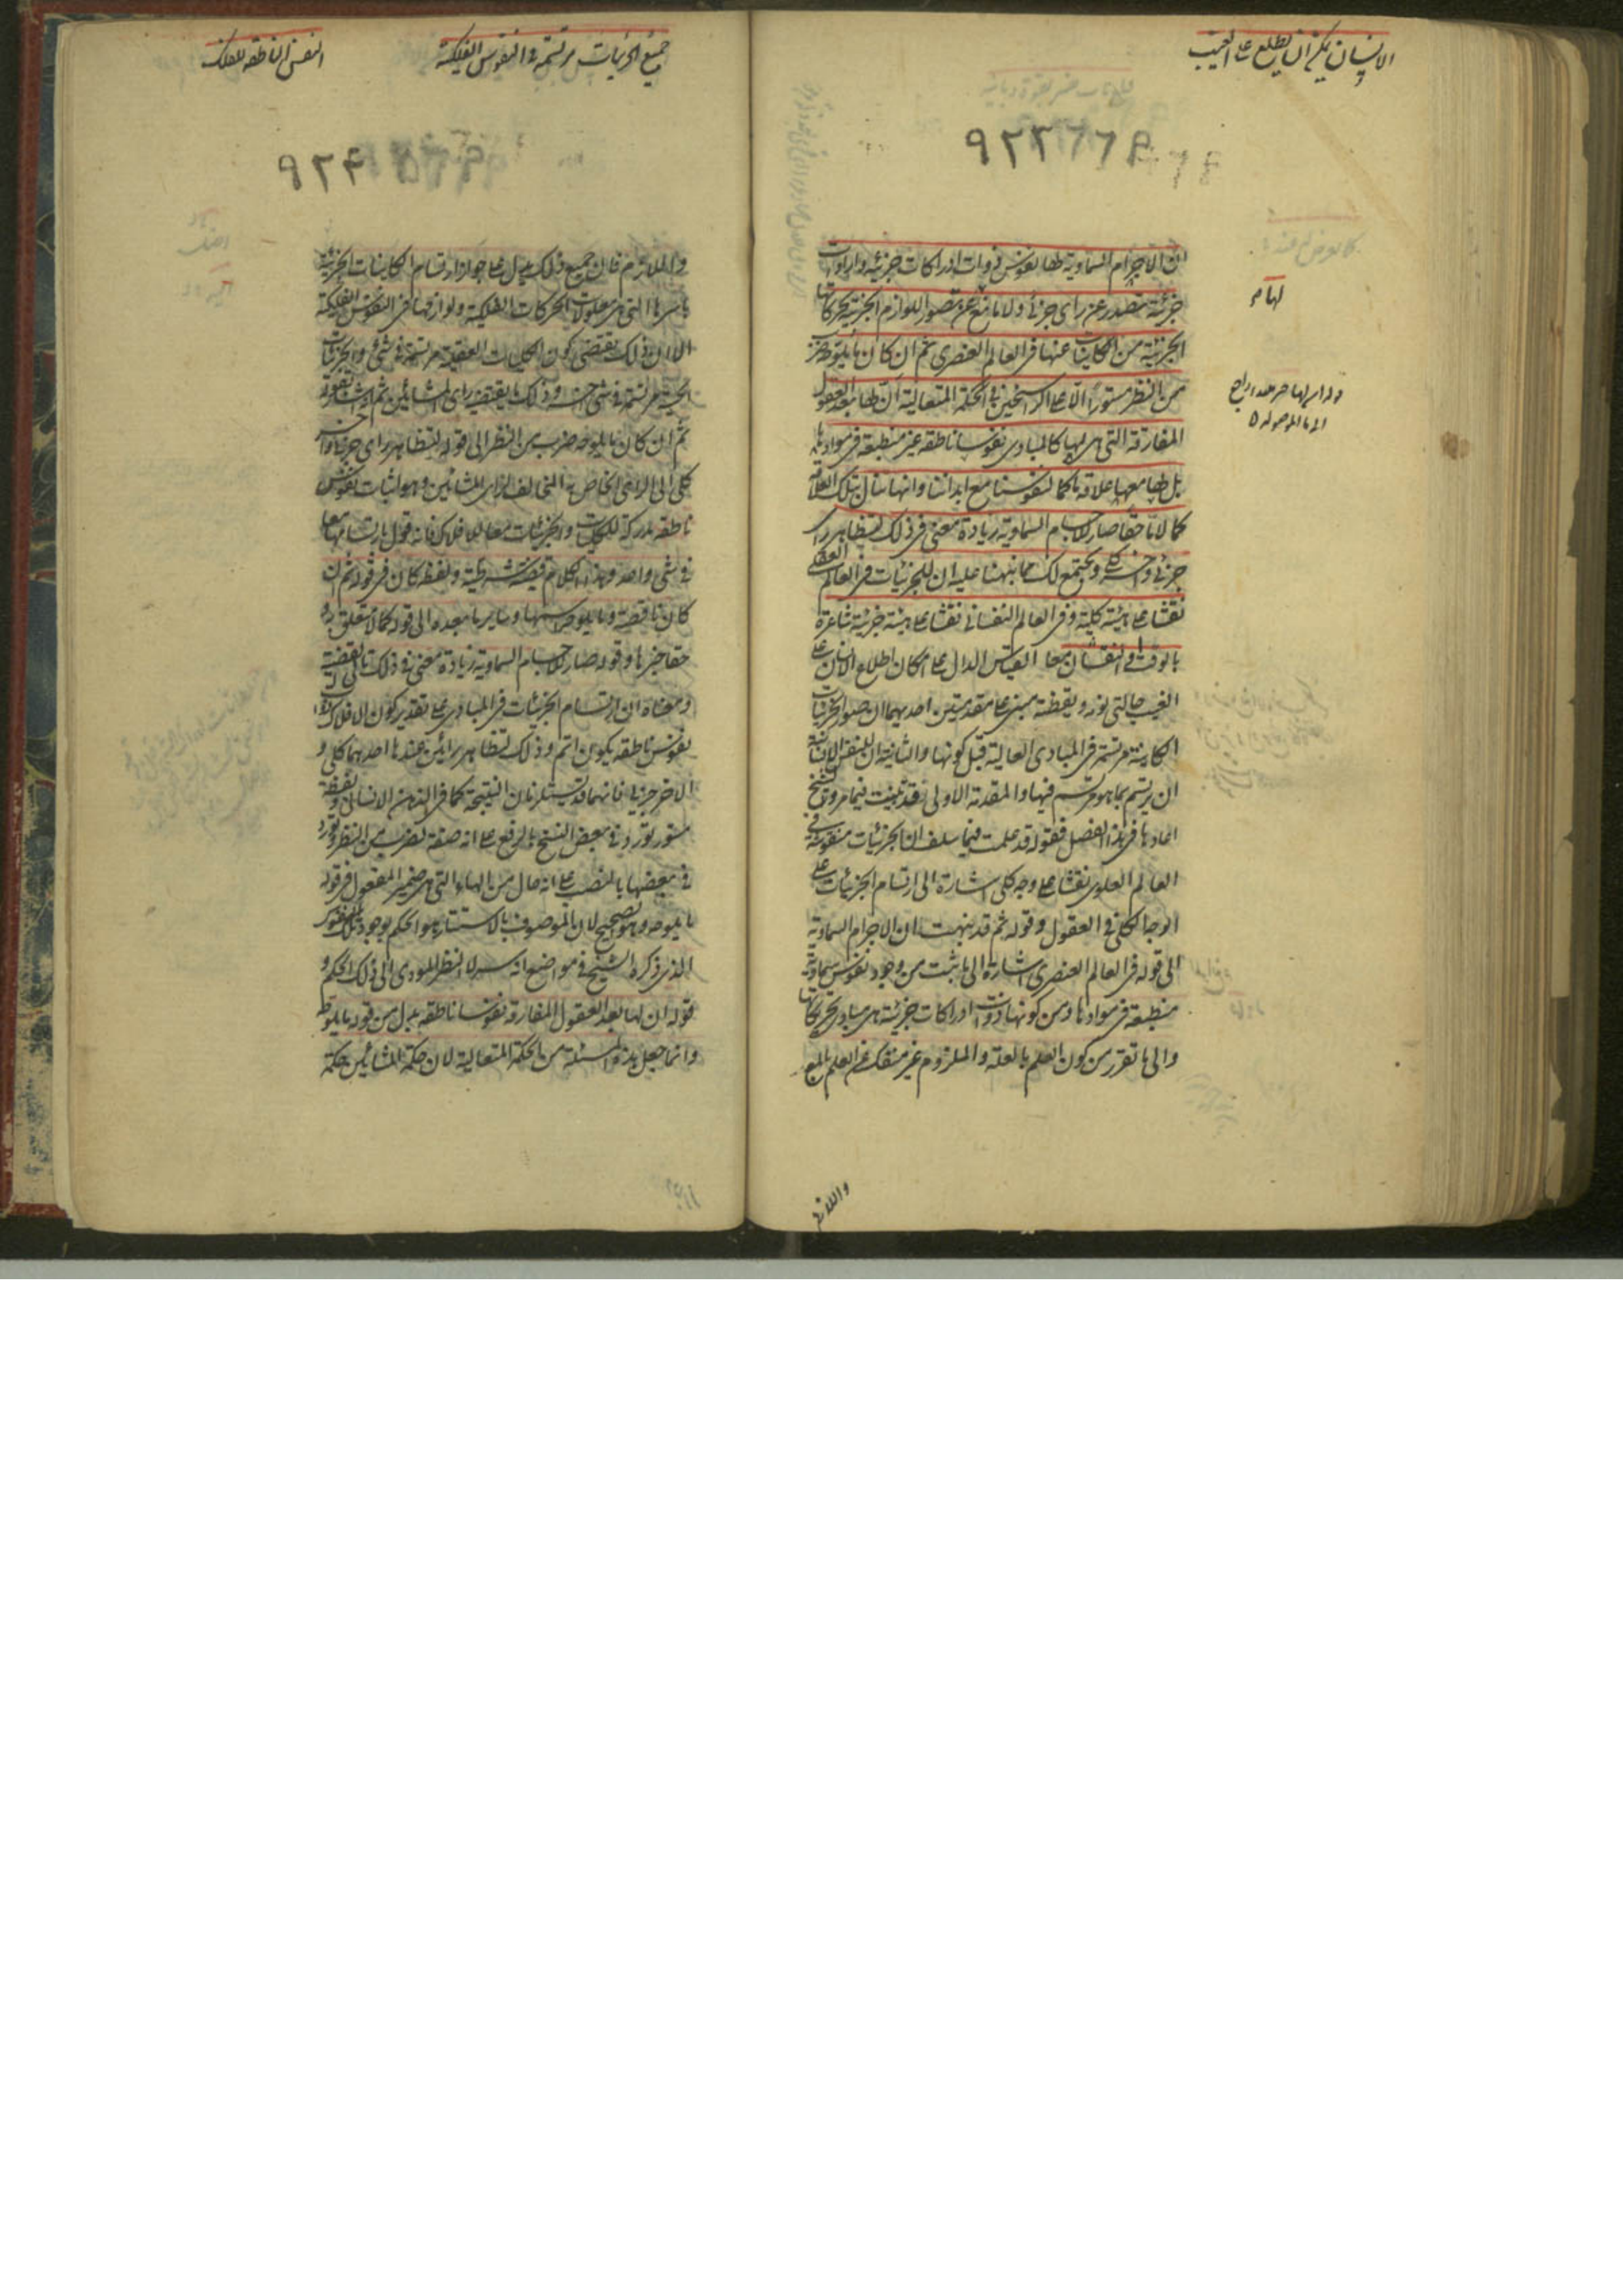 الانسان يمكن ان يطلع على الغيب
٩٢٣
ان الاجرام السماوية لها نفوس ذوات ادراكات جزئية وارادات
جزئية تصدر عن راى جزئى ولا مانع عن تصور اللوازم الجزئية لحركاتها
الجزئية من الكاينات عنها فى العالم العنصرى ثم ان كان ما يلوحه ضرب
من النظر مستورا الا على الراسخين فى الحكمة المتعالية ان لها بعد العقول
المفارقة التى هى لها كالمبادى نفوسا ناطقة غير منطبعة فى موادها
بل لها معها علاقة ما كما لنفوسنا مع ابداننا وانها تنال بتلك العلاقة
كمالا ما حقا صار للاجسام السماوية زيادة معنى فى ذلك لتظاهر راى
جزئى واخر كلى ويجتمع لك مما نبهنا عليه ان للجزئيات فى العالم العقلى
نقشا على هيئة كلية وفى العالم النفسانى نقشا على هيئة جزئية شاعرة
بالوقت او النقشان معا القياس الدال على امكان اطلاع الانسان على
الغيب حالتى نومه ويقظته مبنى على مقدمتين احديهما ان صور الجزئيات
الكاينة مرتسمة فى المبادى العالية قبل كونها والثانية ان للنفس الانسانية
ان يرتسم بما هو مرتسم فيها والمقدمة الاولى قد تثبت فيما مر والشيخ
اعادها فى هذا الفصل فقوله قد علمت فيما سلف ان الجزئيات منقوشة فى
العالم العلوى نقشا على وجه كلى اشارة الى ارتسام الجزئيات على
الوجه الكلى فى العقول وقوله ثم قد نبهت ان الاجرام السماوية
الى قوله فى العالم العنصرى اشارة الى ما ثبت من وجود نفوس سماوية
منطبعة فى موادها ومن كونها ذوات ادراكات جزئية هى مبادى تحريكاتها
والى ما تقرر من كون العلم بالعلة والملزوم غير منفك عن العلم بالمع
واللازم
جميع الجزئيات مرتسمة فى النفوس الفلكية
النفس الناطقة للفلك
٩٢٤
واللازم فان جميع ذلك يدل على جواز ارتسام الكاينات الجزئية
باسرها التى هى معلولات الحركات الفلكية ولوازمها فى النفوس الفلكية
الا ان ذلك يقتضى كون الكليات العقلية مرتسمة فى شئ والجزئيات
الحسية مرتسمة فى شئ اخر وذلك ما يقتضيه راى المشائين ثم اشار بقوله
ثم ان كان ما يلوحه ضرب من النظر الى قوله لتظاهر راى جزئى واخر
كلى الى الراى الخاص به المخالف لراى المشائين وهو اثبات نفوس
ناطقة مدركة للكليات والجزئيات معا للافلاك فانه قول بارتسامهما معا
فى شئ واحد وهذا الكلام قضية شرطية ولفظة كان فى قوله ثم ان
كان ناقصة وما يلوحه اسمها وسايرها بعده الى قوله كمالا ما متعلق به
حقا خبرها وقوله صار للاجسام السماوية زيادة معنى فى ذلك تالى القضية
ومعناه ان ارتسام الجزئيات فى المبادى على تقدير كون الافلاك ذوات
نفوس ناطقة يكون اتم وذلك لتظاهر رايين عندها احدهما كلى و
الاخر جزئى فانهما قد يستلزمان النتيجة كما فى الذهن الانسانى ولفظة
مستور تورد فى بعض النسخ بالرفع على انه صفة لضرب من النظر وتورد
فى بعضها بالنصب على انه حال من الهاء التى هى ضمير المفعول فى قوله
ما يلوحه وهو صحيح لان الموصوف بالاستتار هو الحكم بوجود تلك النفوس
الذى ذكره الشيخ فى مواضع انه سر لا النظر المودى الى ذلك الحكم و
قوله ان لها بعد العقول المفارقة نفوسا ناطقة بدل من قوله ما يلوحه
وانما جعل هذه المسئلة من الحكمة المتعالية لان حكمة المشائين حكمة